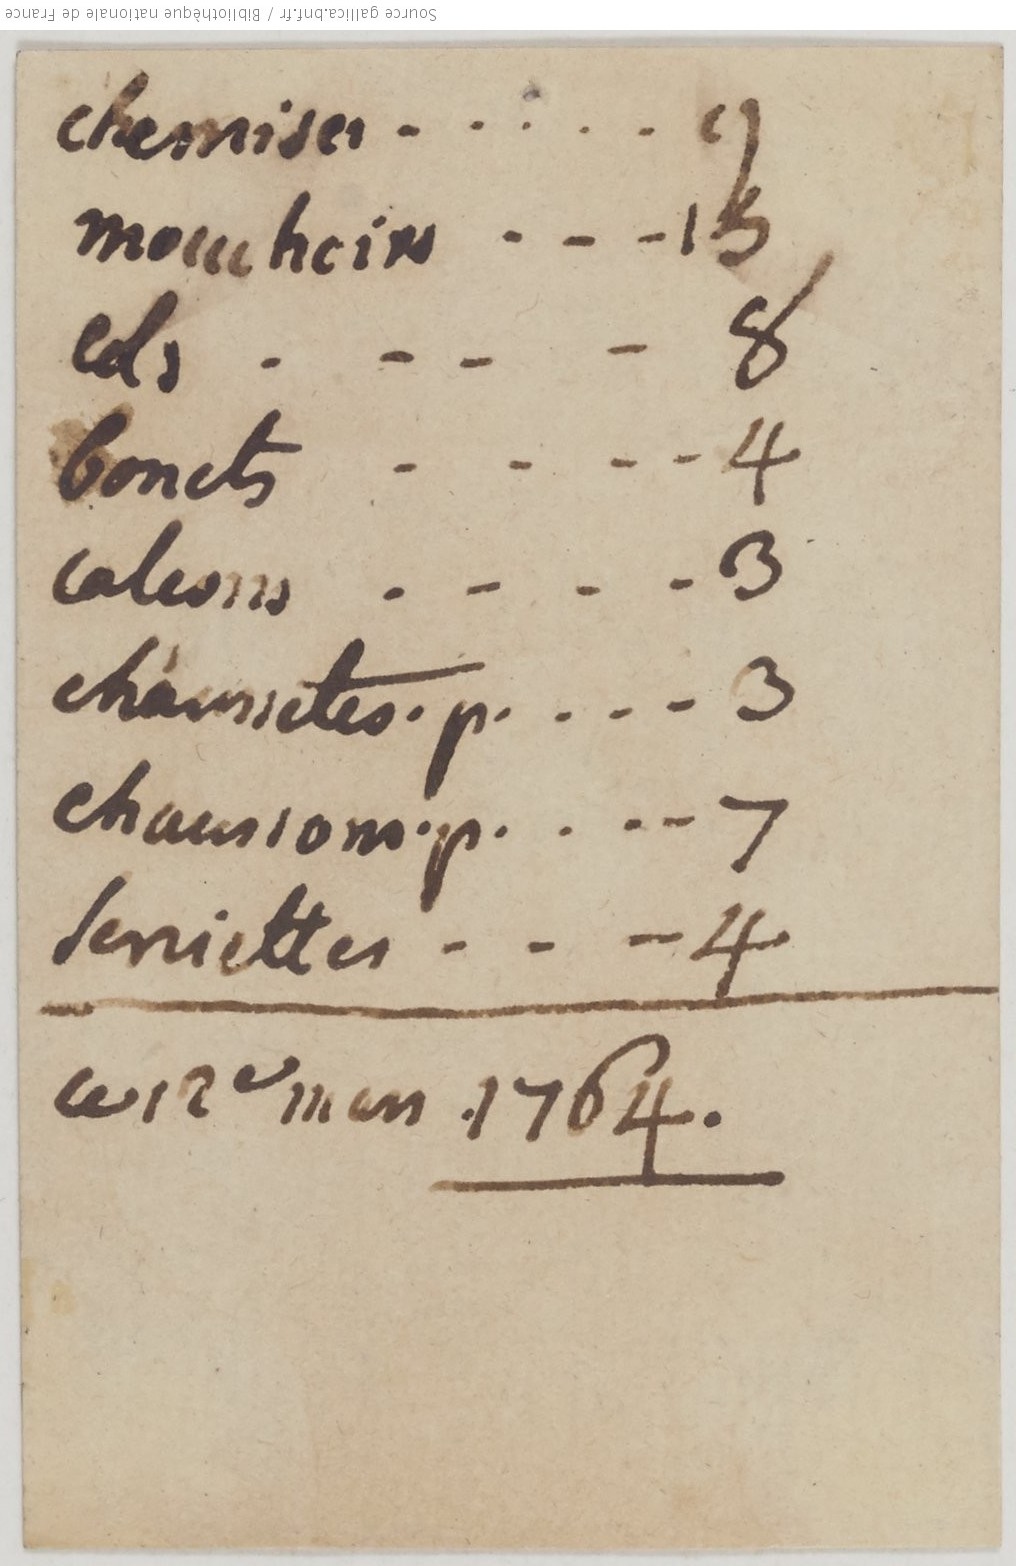 Source gallica.bnf.fr / Bibliothèque nationale de France
chemises - - - - - 9
mouchoirs - - - 15
cols - - - - 8
bonets - - - - 4
calesons - - - - 3
chaussetes . p. - - - 3
chaussons . p. - - - 7
serviettes - - - 4
ce 12e mars .1764.